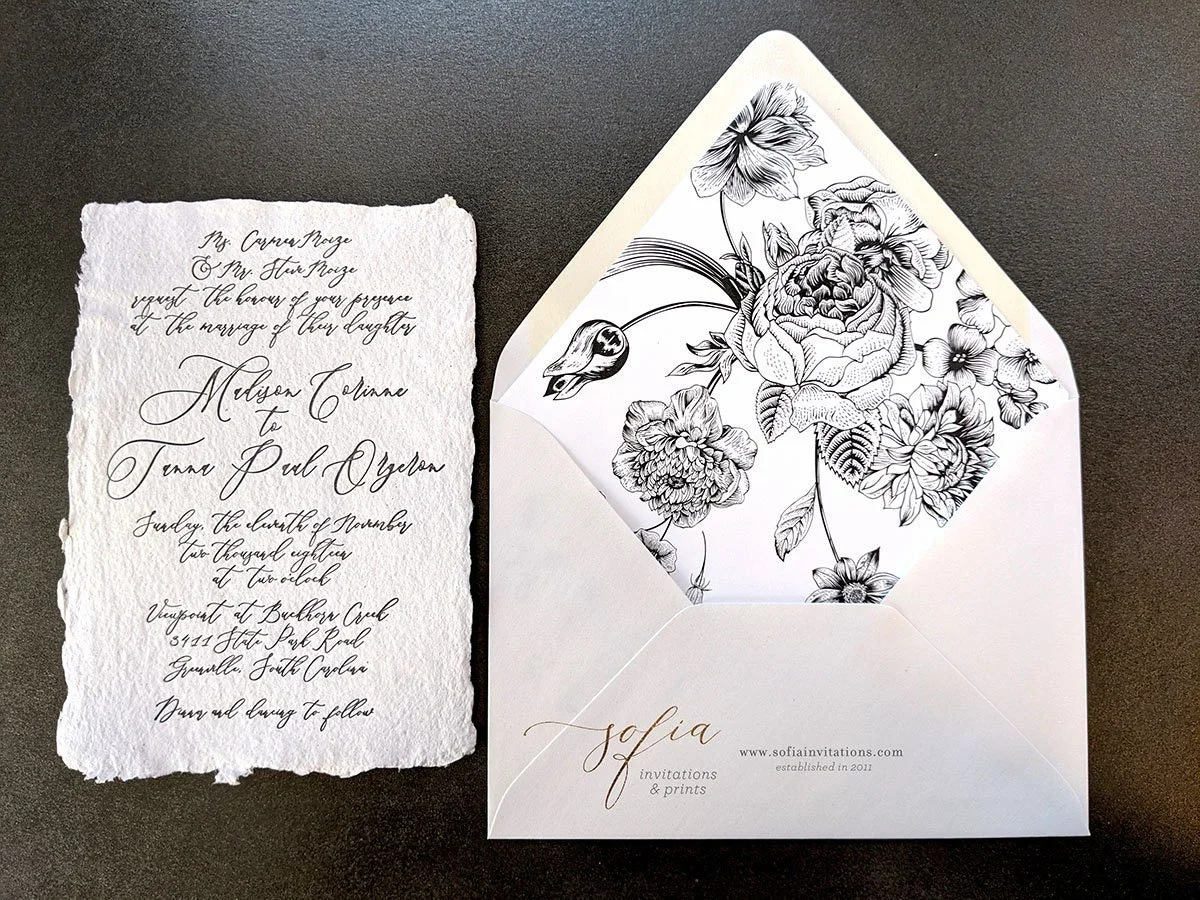 Ms. Carmen Moize
& Mr. Steve Moize
request the honour of your presence
at the marriage of their daughter
Madison Corinne
to
Tanna Paul Orgeron
Sunday, the eleventh of November
two thousand eighteen
at two oclock
Viewpoint at Buckhorn Creek
3411 State Park Road
Greenville, South Carolina
Dinner and dancing to follow
sofia
invitations
& prints
www.sofiainvitations.com
established in 2011